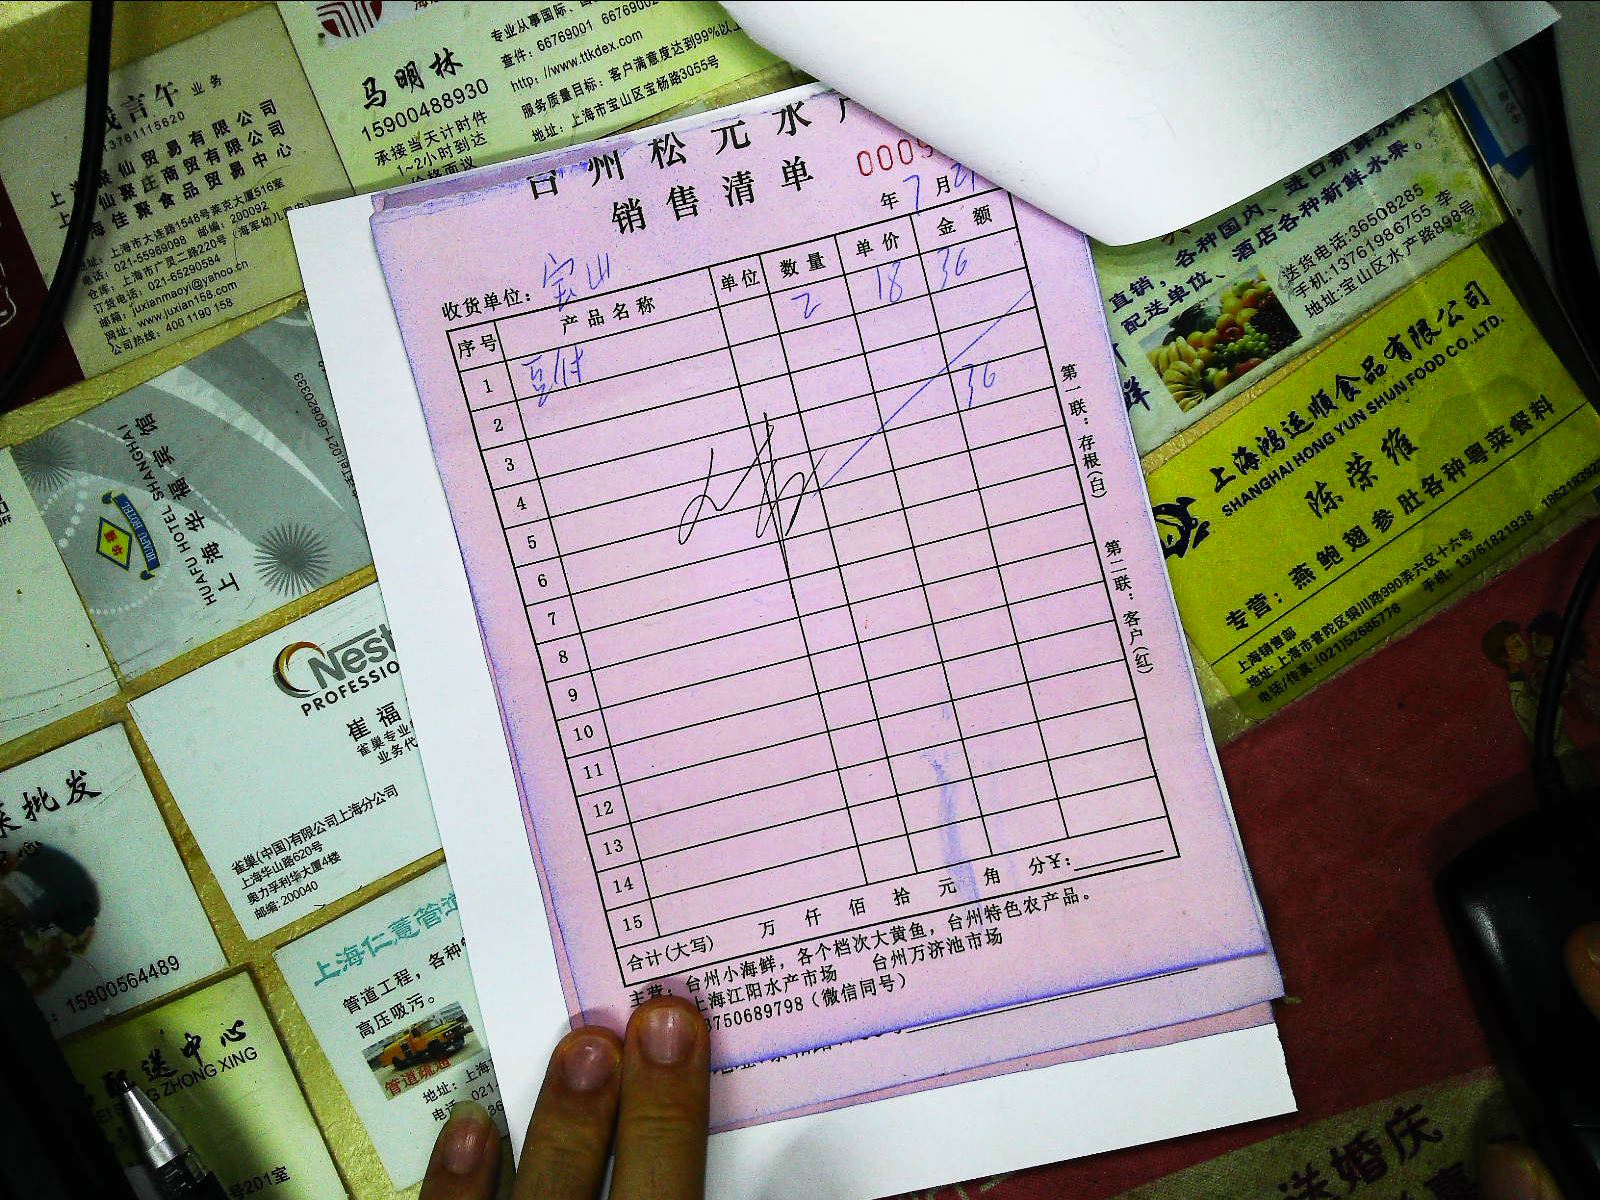 业务
13761115620
上海聚仙贸易有限公司
上海仙聚庄商贸有限公司
上海佳聚食品贸易中心
地址：上海市大连路1546号莱克大厦516室
电话：021-55969098 邮编：200092
仓库：上海市广灵二路220号（海军幼儿园内）
订货电话：021-65290584
邮箱：juxianmaoyi@yahoo.cn
网址：www.juxian158.com
公司热线：400 1190 158
马明林
15900488930
承接当天计时件
1~2小时到达
价格面议
专业从事国际、国
查件：66769001 6676900
http：//www.ttkdex.com
服务质量目标：客户满意度达到99%以上
地址：上海市宝山区宝杨路3055号
台州松元水产
销售清单
0009
年 7 月
收货单位：宝山
序号 产品名称 单位 数量 单价 金额
1 豆付 2 18 36
2
3
4 36
5
6
7
8
9
10
11
12
13
14
15
合计(大写) 万 仟 佰 拾 元 角 分¥：
主营：台州小海鲜，各个档次大黄鱼，台州特色农产品。
上海江阳水产市场 台州万济池市场
3750689798（微信同号）
第一联：存根(白)
第二联：客户(红)
直销，各种国内、进口新鲜水果、
配送单位、酒店各种新鲜水果。
送货电话:36508285
手机:13761986755 李
地址:宝山区水产路898号
鲜
上海鸿运顺食品有限公司
SHANGHAI HONG YUN SHUN FOOD CO.,LTD.
陈荣雄
专营：燕鲍翅参肚各种粤菜餐料
上海销售部
地址:上海市普陀区铜川路990弄六区十六号
电话/传真:(021)52685778 手机:13761821938
上海华福宾馆
HUAFU HOTEL SHANGHAI
Tel:021-60820333
Nest
PROFESSIO
崔福
雀巢专业
业务代
雀巢(中国)有限公司上海分公司
上海华山路620号
奥力孚利华大厦4楼
邮编: 200040
批发
15800564489
上海仁薏管道
管道工程，各种
高压吸污。
管道疏通
地址：上海
电话：021-
配送中心
ZHONG XING
号201室
送婚庆